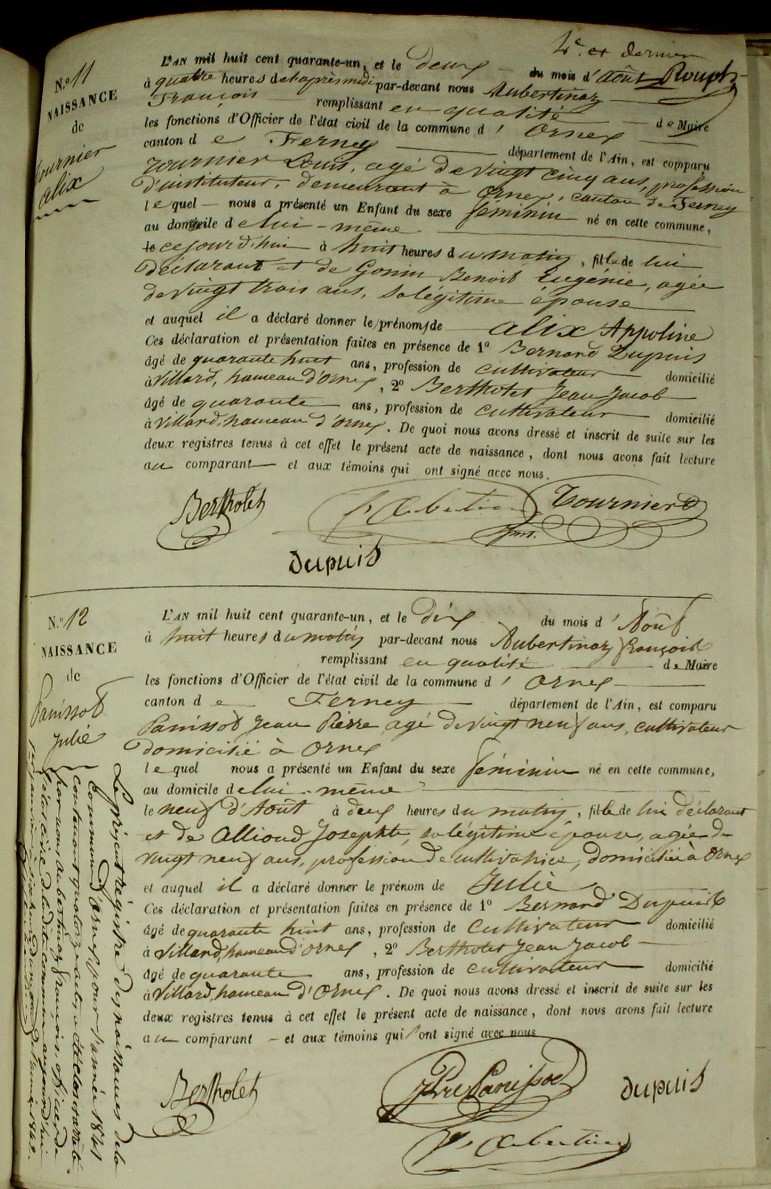 4e et dernier
N.o 11
NAISSANCE
de
Tournier
alix
L'AN mil huit cent quarante-un, et le deux du mois d'Août
à quatre heures de l'après midi par-devant nous Aubertinaz
François remplissant en qualité de Maire
les fonctions d'Officier de l'état civil de la commune d'Ornex
canton de Ferney département de l'Ain, est comparu
Tournier Louis, agé de vingt cinq ans, profession
d'instituteur, demeurant à Ornex, canton de Ferney
lequel nous a présenté un Enfant du sexe féminin né en cette commune,
au domicile de lui-même
le cejourd'hui à huit heures du matin, fille de lui
déclarant et de Gonin Benoit Eugénie, agée
de vingt trois ans, sa légitime épouse
et auquel il a déclaré donner le prénom de alix Appoline
Ces déclaration et présentation faites en présence de 1o Bernard Dupuis
âgé de quarante huit ans, profession de cultivateur domicilié
à Villard, hameau d'Ornex, 2o Bertholet Jean Jacob
âgé de quarante ans, profession de cultivateur domicilié
à Villard, hameau d'Ornex. De quoi nous avons dressé et inscrit de suite sur les
deux registres tenus à cet effet le présent acte de naissance, dont nous avons fait lecture
au comparant et aux témoins qui ont signé avec nous.
Bertholet Tournier
Dupuis
N.o 12
NAISSANCE
de
Panissod
Julie
L'AN mil huit cent quarante-un, et le dix du mois d'Août
à huit heures du matin par-devant nous Aubertinaz françois
remplissant en qualité de Maire
les fonctions d'Officier de l'état civil de la commune d'Ornex
canton de Ferney département de l'Ain, est comparu
Panissod Jean Pierre agé de vingt neuf ans, cultivateur
domicilié à Ornex
lequel nous a présenté un Enfant du sexe féminin né en cette commune,
au domicile de lui-même
le neuf d'Août à deux heures du matin, fille de lui déclarant
et de Alliond Josephte, sa légitime épouse, agée de
vingt neuf ans, profession de cultivatrice, domiciliée à Ornex
et auquel il a déclaré donner le prénom de Julie
Ces déclaration et présentation faites en présence de 1o Bernard Dupuis
âgé de quarante huit ans, profession de cultivateur domicilié
à Villard, hameau d'Ornex, 2o Bertholet Jean Jacob
âgé de quarante ans, profession de cultivateur domicilié
à Villard, hameau d'Ornex. De quoi nous avons dressé et inscrit de suite sur les
deux registres tenus à cet effet le présent acte de naissance, dont nous avons fait lecture
au comparant et aux témoins qui ont signé avec nous
Bertholet Panissod Dupuis
Le présent régistre des naissances de la
Commune d'Ornex, pour l'année 1841
contenant quatorze actes a été clos et arrêté
par nous Aubertinaz françois, officier de
l'état civil de ladite Commune